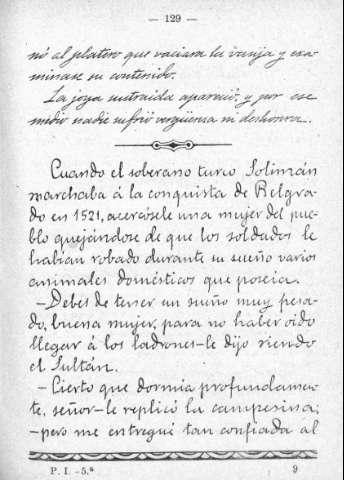 — 129 —
nó al platero que vaciara la vasija y exa-
minase su contenido.
La joya sustraida apareció, y por ese
medio nadie sufrió vergüenza ni deshonra.
Cuando el soberano turco Solimán
marchaba á la conquista de Belgra-
do en 1521, acercósele una mujer del pue-
blo quejándose de que los soldados le
habían robado durante su sueño varios
animales domésticos que poseía.
—Debes de tener un sueño muy pesa-
do, buena mujer, para no haber oido
llegar á los ladrones—le dijo riendo
el Sultán.
—Cierto que dormía profundamen-
te, señor—le replicó la campesina;
—pero me entregué tan confiada al
P. I. —5.ª 9